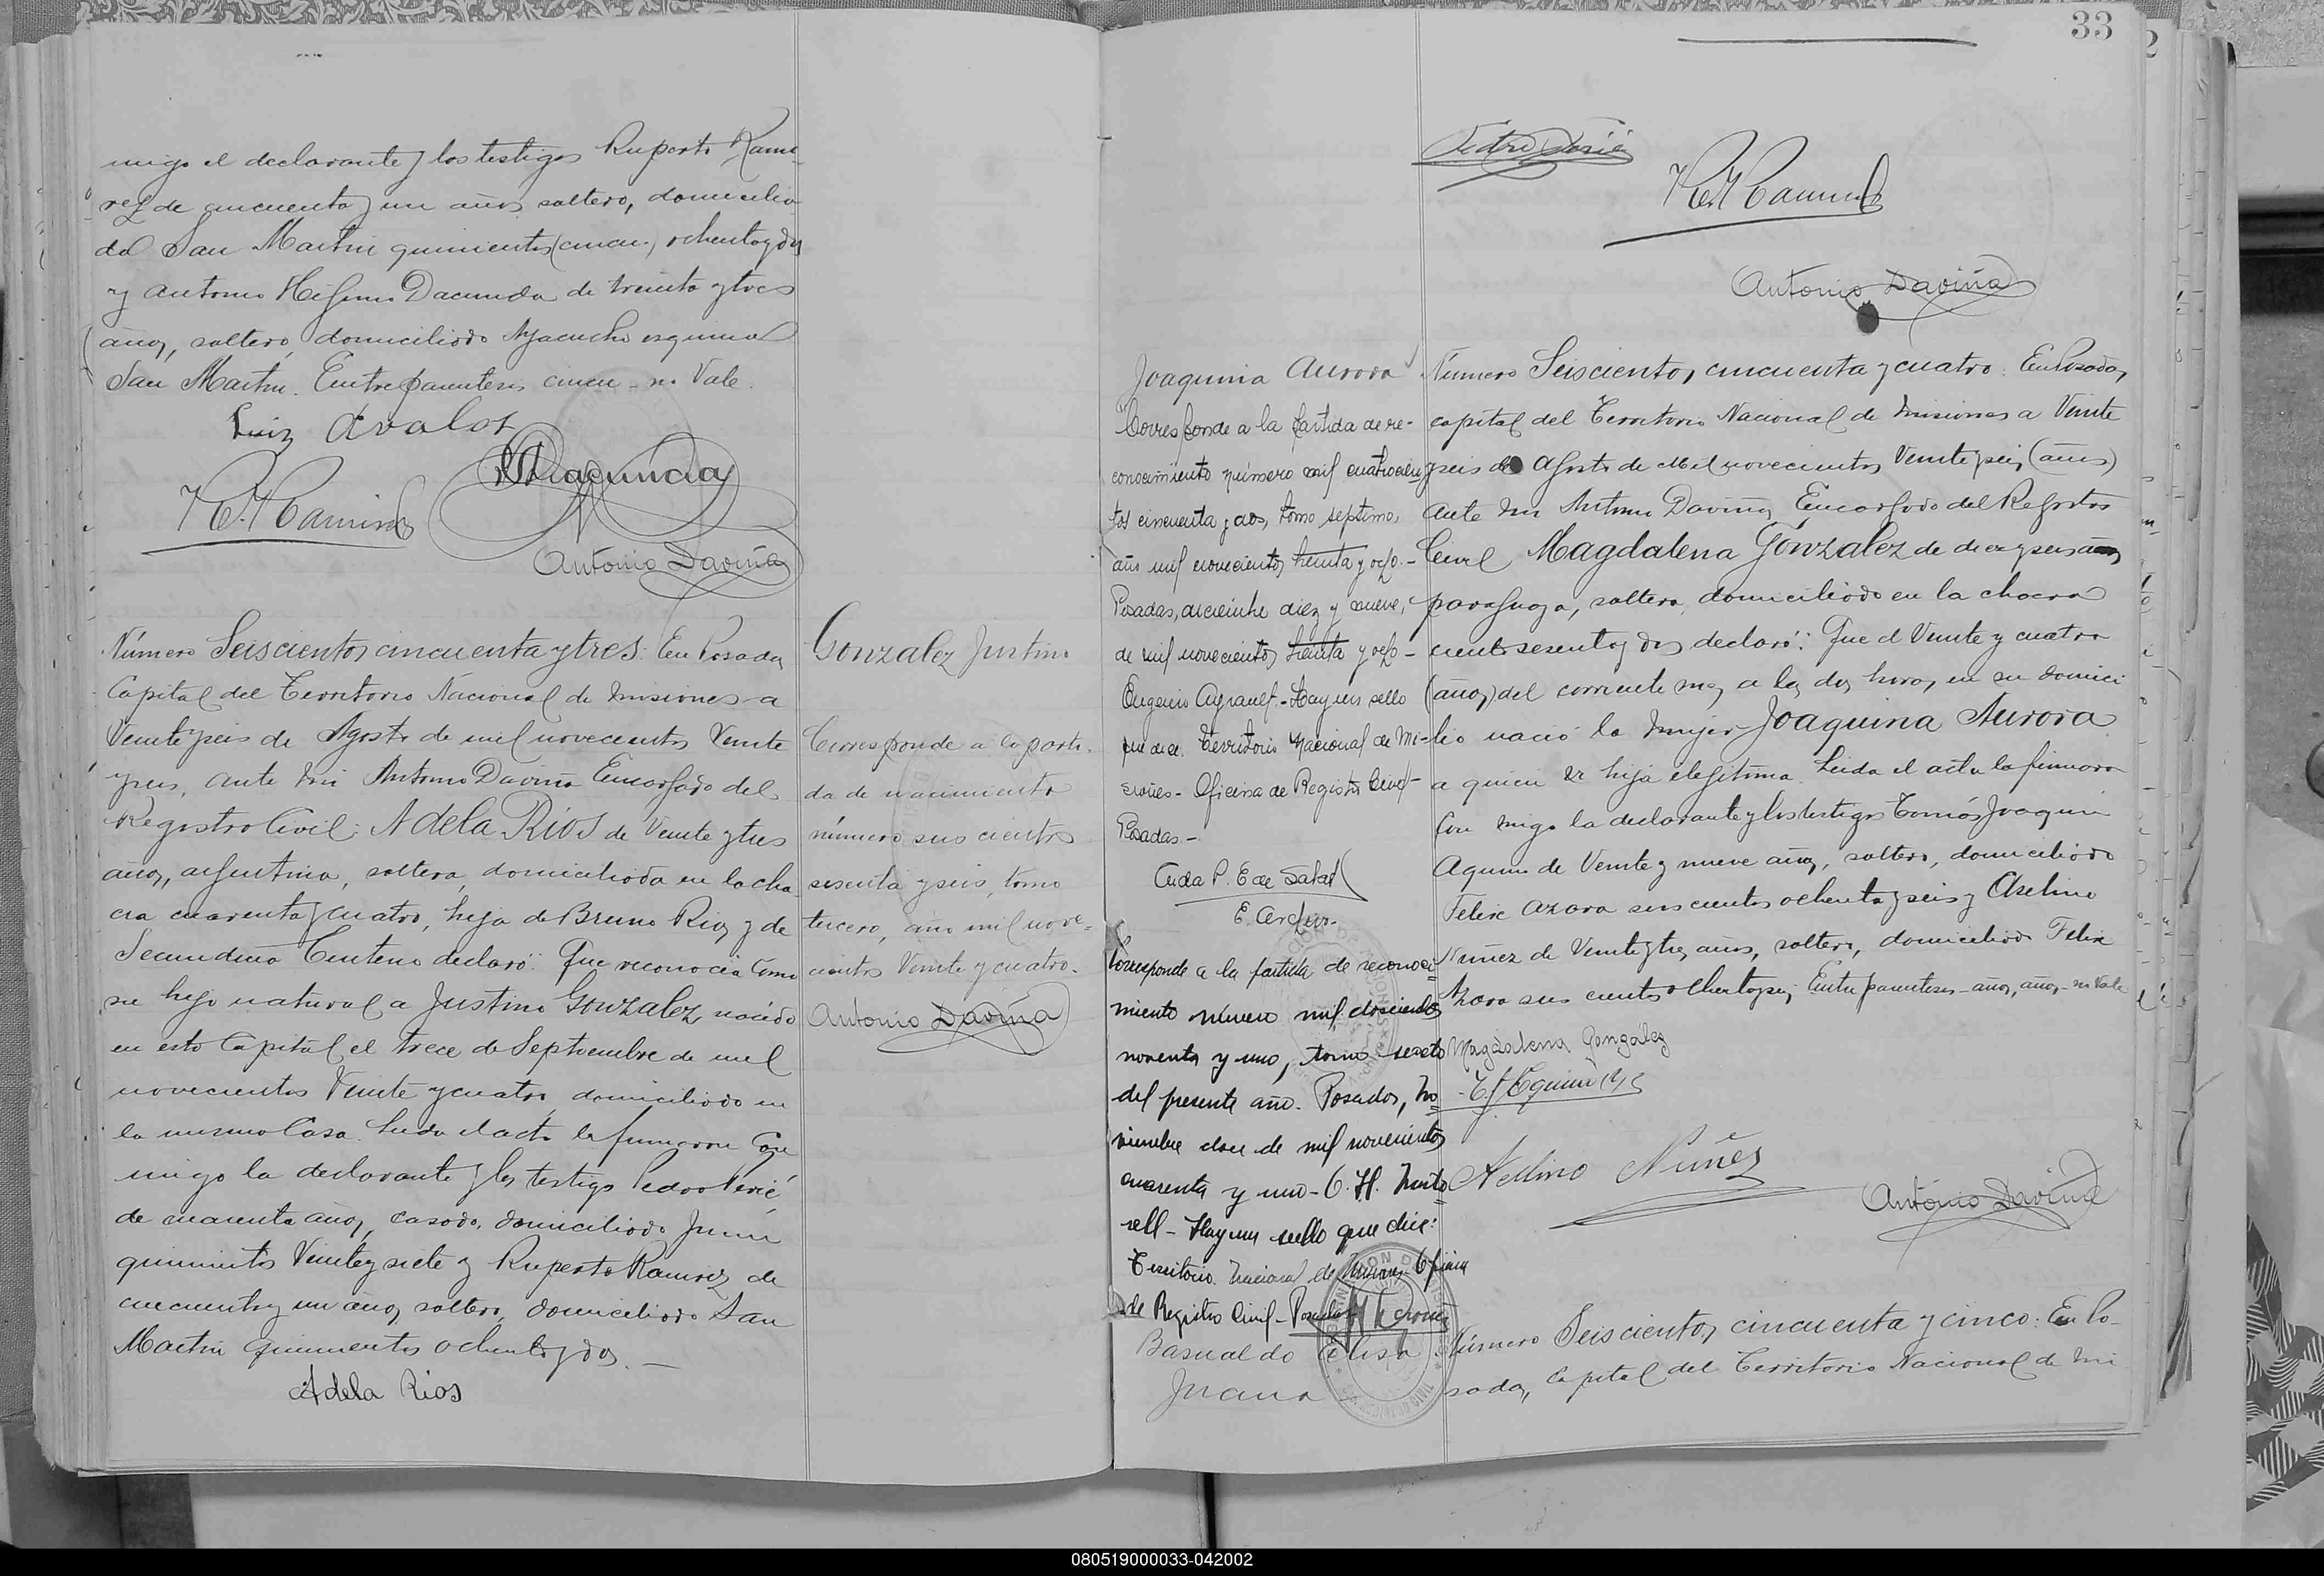 migo el declarante y los testigos Ruperto Rami-
rez de cincuenta y un años, soltero, domicilia
do San Martin quinientos (cincu-) ochenta y dos
y Antonio Higinio Dacunda de treinta y tres
años, soltero, domiciliado Ayacucho esquina
San Martin. Entre parentesis cincu - no Vale.
Luiz Avalos
Dacunda
R. Ramirez
Antonio Daviña
Número Seiscientos cincuenta y tres: En Posadas
Capital del Territorio Nacional de Misiones a
Veinte y seis de Agosto de mil novecientos Veinte
y seis, ante mi Antonio Daviña Encargado del
Registro Civil: Adela Rios de Veinte y tres
años, argentina, soltera, domiciliada en la cha
cra cuarenta y cuatro, hija de Bruno Rios y de
Secundina Centeno declaró: Que reconocia como
su hijo natural a Justino Gonzalez, nacido
en esta Capital el trece de Septiembre de mil
novecientos Veinte y cuatro, domiciliado en
la misma Casa. Leida el acta la firmaron Con
migo la declarante y los testigos Pedro
de cuarenta años, casado, domiciliado Junin
quinientos Veinte y siete y Ruperto Ramirez de
cincuenta y un años, soltero, domiciliado San
Martin quinientos ochenta y dos. —
Adela Rios
Gonzalez Justino
Corresponde a la parti-
da de nacimiento
número seis cientos
sesenta y seis, tomo
tercero, año mil nove-
cientos Veinte y cuatro.
Antonio Daviña
33
Pedro
R. Ramirez
Antonio Daviña
Joaquina Aurora
Corresponde a la partida de re-
conocimiento número mil cuatrocien
tos cincuenta y dos, tomo septimo,
año mil novecientos treinta y ocho.-
Posadas, diciembre diez y nueve,
de mil novecientos treinta y ocho -
Eugenio - Hay un sello
que dice: Territorio Nacional de Mi-
siones - Oficina de Registro Civil -
Posadas.-
Corresponde a la partida de reconoci
miento número mil doscientos
noventa y uno, tomo sexto
del presente año. Posadas, No
viembre doce de mil novecientos
cuarenta y uno - C. H.
rell - Hay un sello que dice:
Territorio Nacional de Misiones Oficina
de Registro Civil - Posadas
Basualdo Elisa
Juana
Número Seiscientos cincuenta y cuatro: En Posadas,
capital del Territorio Nacional de Misiones a Veinte
y seis de Agosto de Mil novecientos Veinte y seis (años)
ante mi Antonio Daviña Encargado del Registro
Civil Magdalena Gonzalez de diez y seis años
paraguaya, soltera, domiciliada en la chacra
ciento sesenta y dos declaró: Que el Veinte y cuatro
(años) del corriente mes, a las dos horas, en su domici
lio nació la mujer Joaquina Aurora
a quien es hija ilegitima. Leida el acta la firmaron
Con migo la declarante y los testigos Tomás Joaquin
Aquino de Veinte y nueve años, soltero, domiciliado
Felix Azara seis cientos ochenta y seis y Avelino
Nuñez de Veinte y tres años, soltero, domiciliado Felix
Azara seis cientos ochenta y seis, Entre parentesis - años, años - no Vale
Magdalena Gonzalez
Avelino Nuñez
Antonio Daviña
Número Seiscientos cincuenta y cinco: En Po-
sadas, Capital del Territorio Nacional de Mi
080519000033-042002